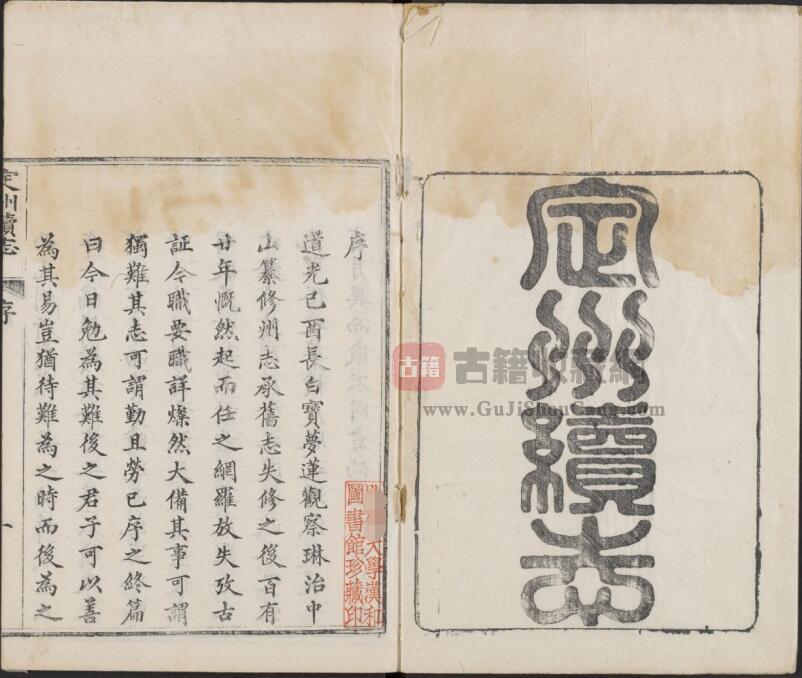 定州續志
序
道光己酉長白寶夢蓮觀察琳治中
山纂修州志承舊志失修之後百有
廿年慨然起而任之網羅放失攷古
証今職要職詳燦然大備其事可謂
獨難其志可謂勤且勞已序之終篇
曰今日勉為其難後之君子可以善
為其易豈猶待難為之時而後為之
定州續志
序
一
大學漢和
圖書館珍藏印
古籍
古籍
www.GuJiShouCang.com